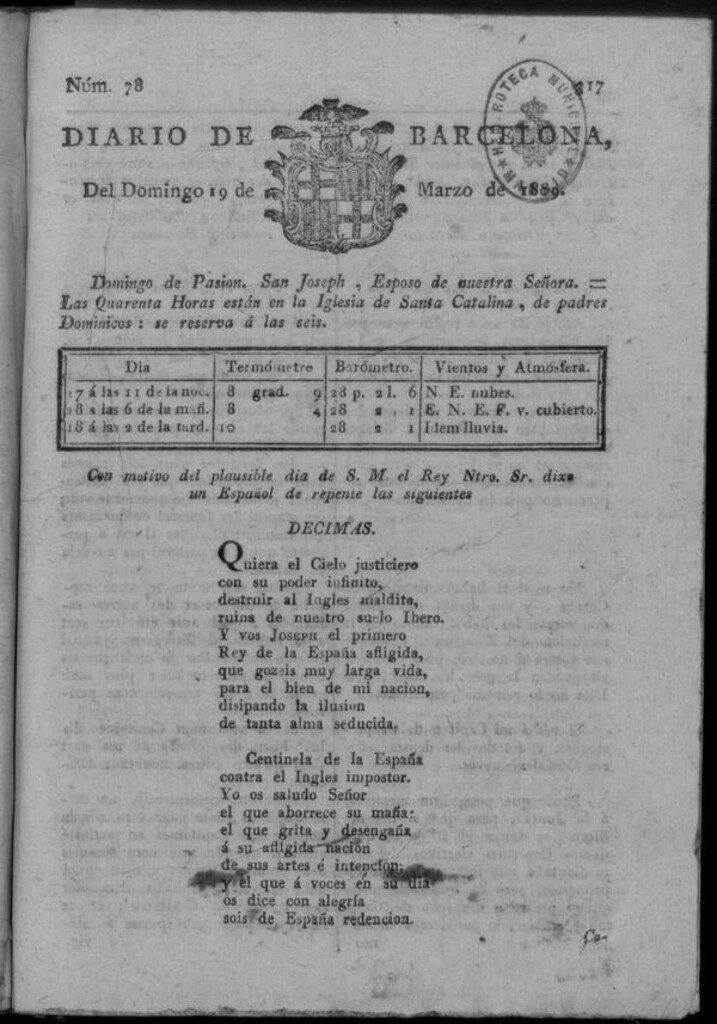 Núm. 78 317
HEMEROTECA MUNICIPAL
MADRID
DIARIO DE BARCELONA,
Del Domingo 19 de Marzo de 1809.
Domingo de Pasion. San Joseph , Esposo de nuestra Señora. =
Las Quarenta Horas están en la Iglesia de Santa Catalina , de padres
Dominicos : se reserva á las seis.
Dia Termómetro Barómetro. Vientos y Atmósfera.
17 á las 11 de la noc. 8 grad. 9 28 p. 2 l. 6 N. E. nubes.
18 a las 6 de la mañ. 8 4 28 2 , 1 E. N. E. F. v. cubierto.
18 á las 2 de la tard. 10 28 2 1 Idem lluvia.
Con motivo del plausible dia de S. M. el Rey Ntro. Sr. dixo
un Español de repente las siguientes
DECIMAS.
Quiera el Cielo justiciero
con su poder infinito,
destruir al Ingles maldito,
ruina de nuestro suelo Ibero.
Y vos JOSEPH el primero
Rey de la España afligida,
que gozeis muy larga vida,
para el bien de mi nacion,
disipando la ilusion
de tanta alma seducida.
Centinela de la España
contra el Ingles impostor.
Yo os saludo Señor
el que aborrece su maña:
el que grita y desengaña
á su afligida nacion
de sus artes é intencion;
y el que á voces en su dia
os dice con alegría
sois de España redencion.
Co-